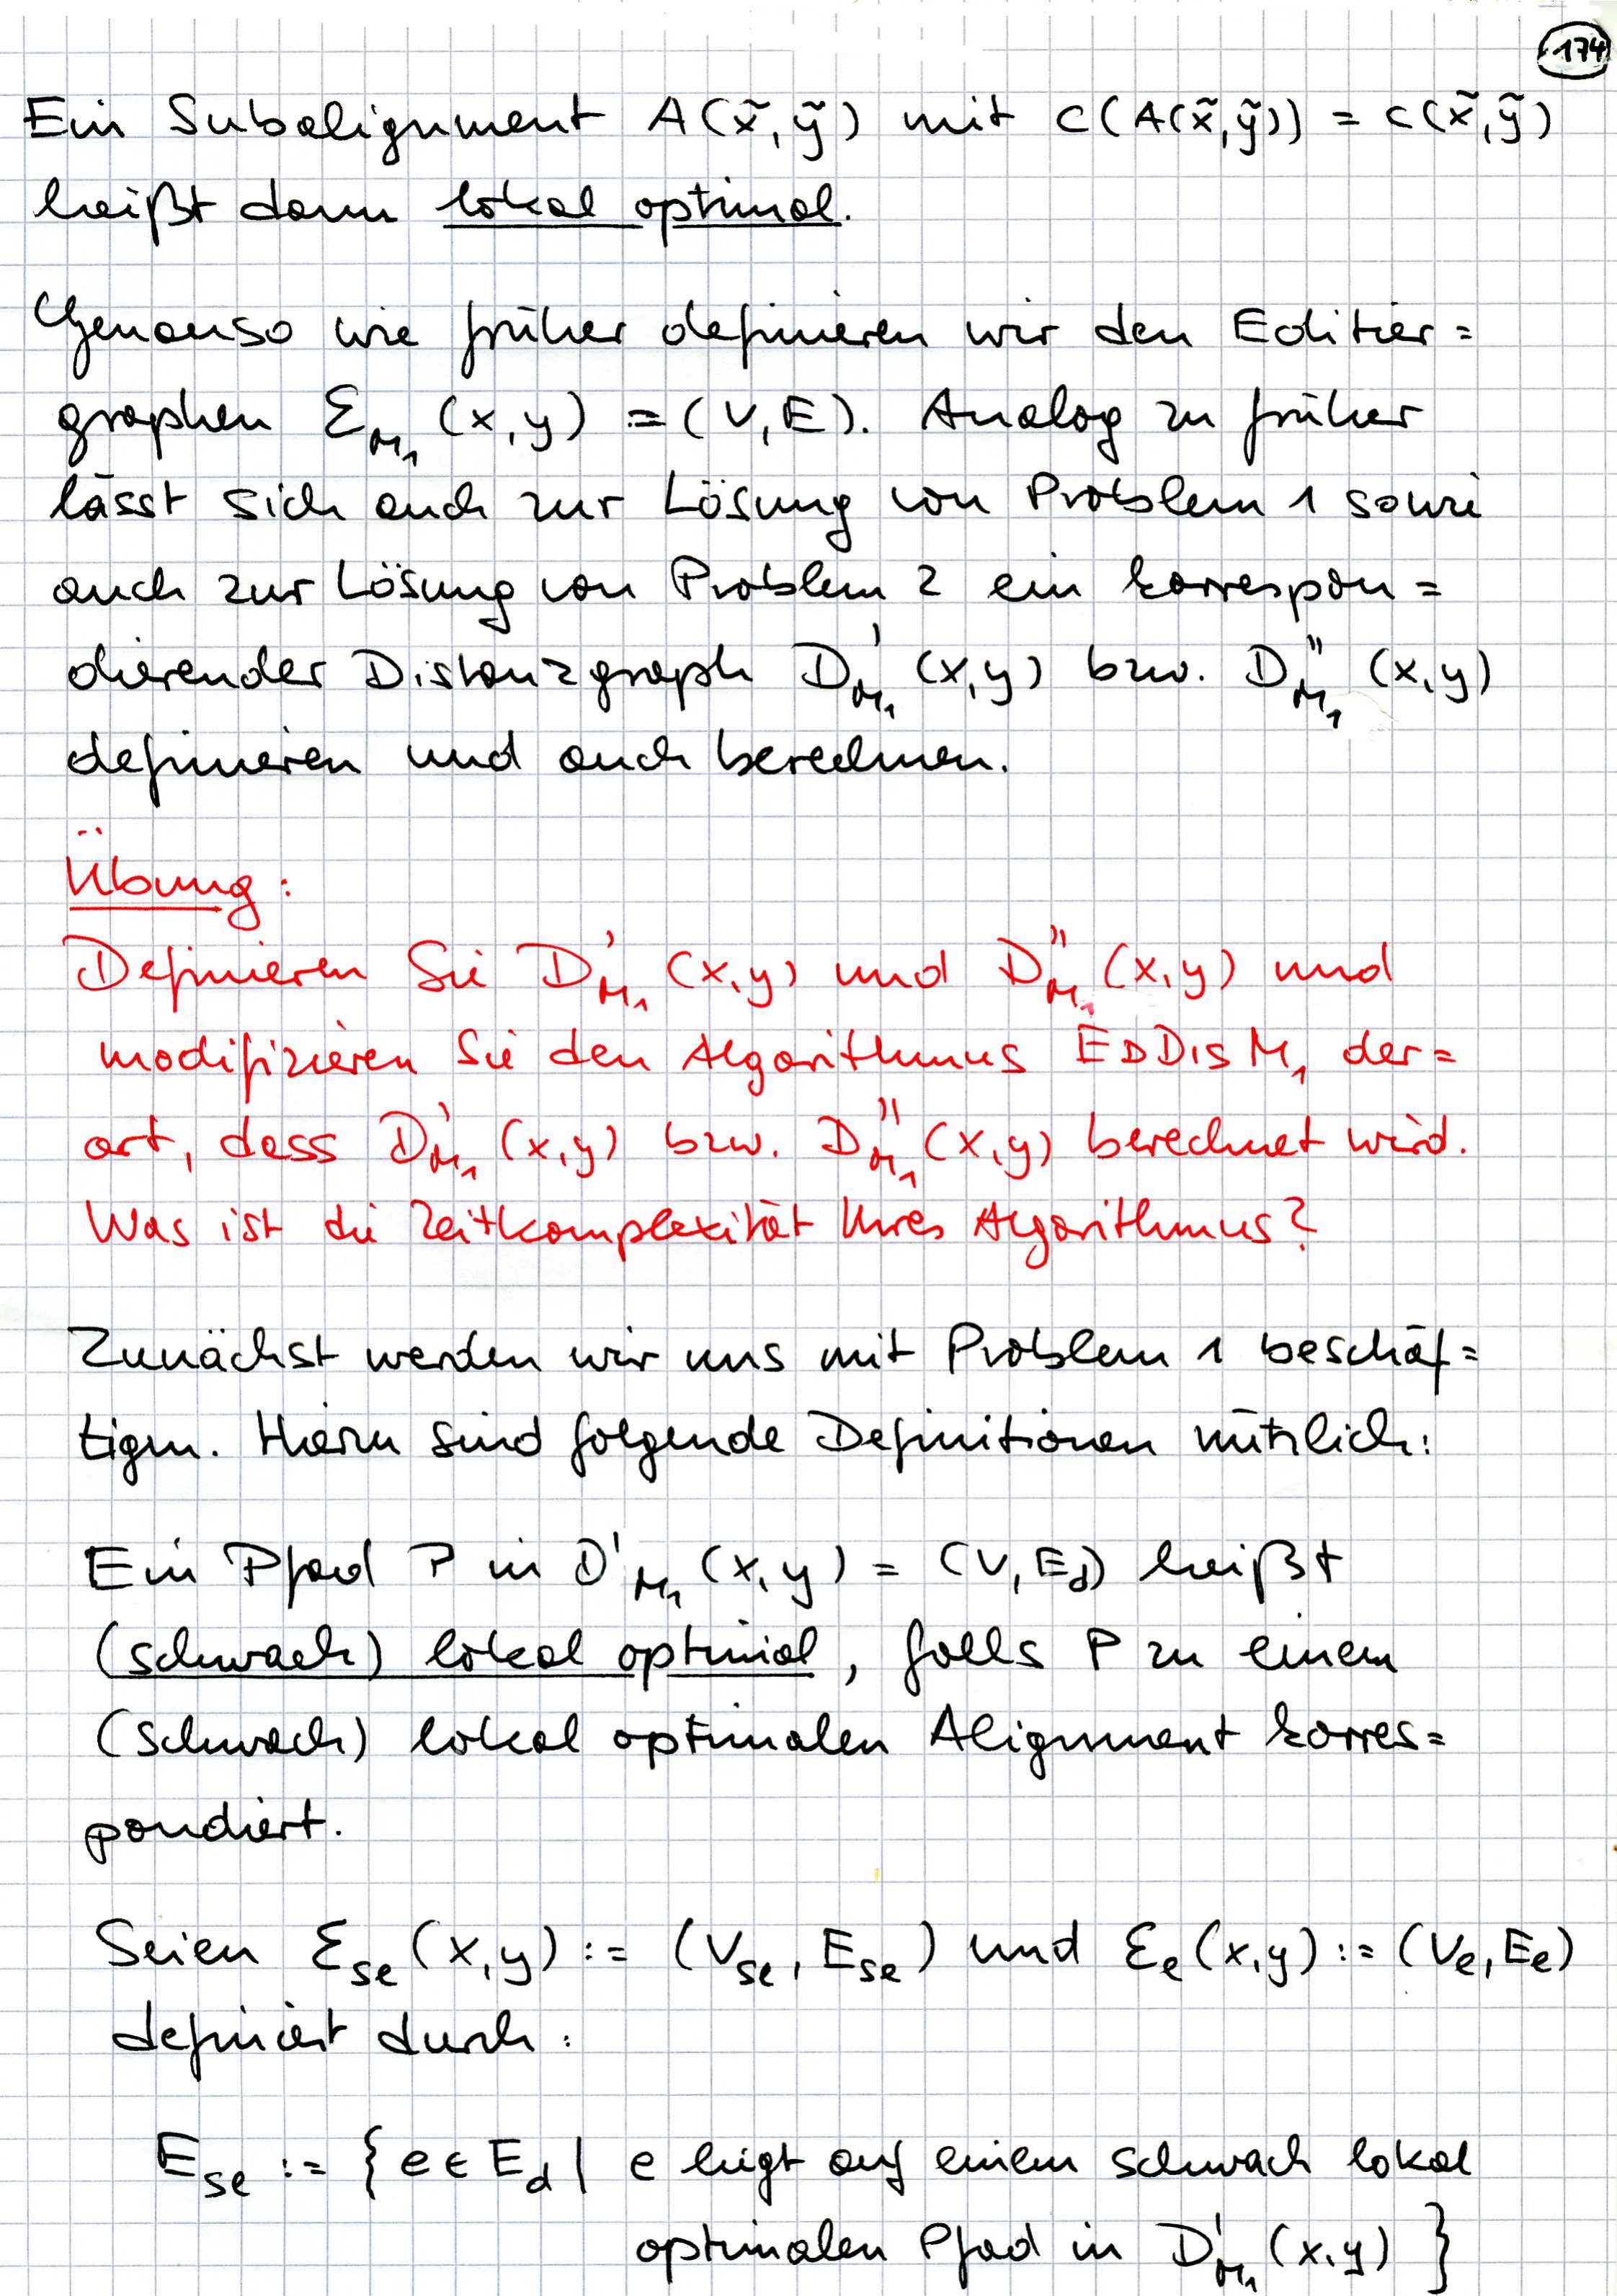 174
Ein Subalignment A(x̃,ỹ) mit c(A(x̃,ỹ)) = c(x̃,ỹ)
heißt dann lokal optimal.
Genauso wie früher definieren wir den Editier=
graphen Ɛ_M₁ (x,y) = (V,E). Analog zu früher
lässt sich auch zur Lösung von Problem 1 sowie
auch zur Lösung von Problem 2 ein korrespon=
dierender Distanzgraph D'_M₁ (x,y) bzw. D''_M₁ (x,y)
definieren und auch berechnen.
Übung:
Definieren Sie D'_M₁ (x,y) und D''_M₁ (x,y) und
modifizieren Sie den Algorithmus EDDISM₁ der=
art, dass D'_M₁ (x,y) bzw. D''_M₁ (x,y) berechnet wird.
Was ist die Zeitkomplexität Ihres Algorithmus?
Zunächst werden wir uns mit Problem 1 beschäf=
tigen. Hierzu sind folgende Definitionen nützlich:
Ein Pfad P in D'_M₁ (x,y) = (V,E_d) heißt
(schwach) lokal optimal, falls P zu einem
(schwach) lokal optimalen Alignment korres=
pondiert.
Seien Ɛ_se (x,y) := (V_se, E_se) und Ɛ_e (x,y) := (V_e, E_e)
definiert durch:
E_se := { e ∈ E_d | e liegt auf einem schwach lokal
optimalen Pfad in D'_M₁ (x,y) }